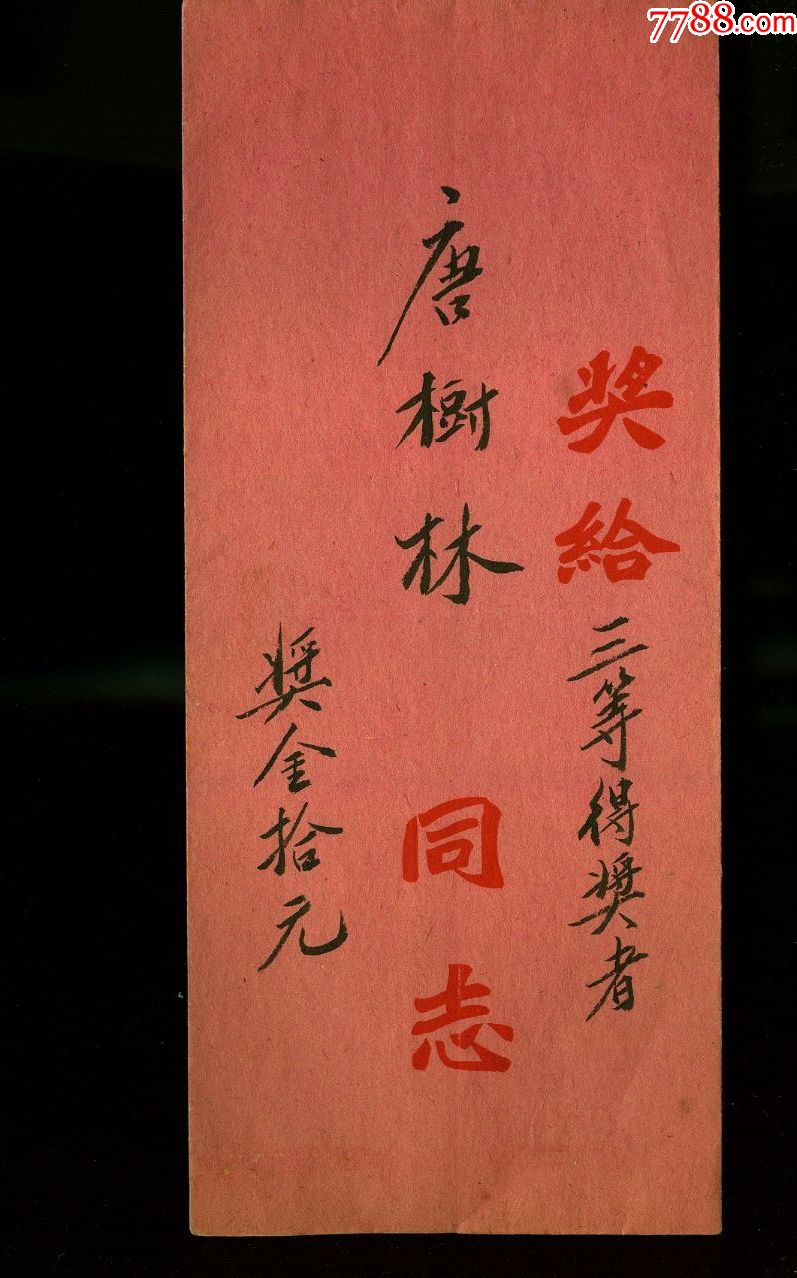 7788.com
奖給三等得獎者
唐樹林同志
獎金拾元